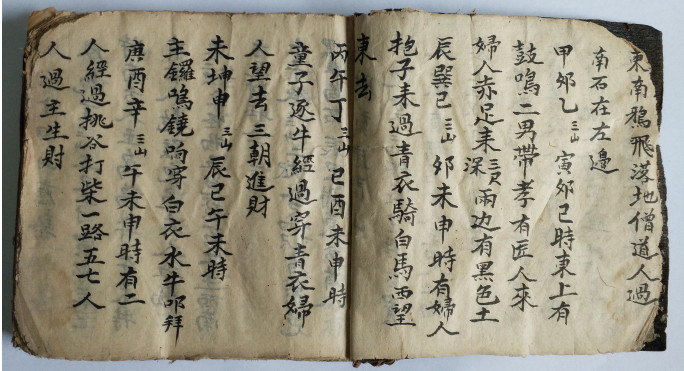 東南鴉飛沒地僧道人過
南石在左邊
甲卯乙三山寅卯己時東上有
鼓鳴二男帶孝有匠人來
婦人赤足來深三尺兩边有黑色土
辰巽巳三山卯未申時有婦人
抱子來過青衣騎白馬西望
東去
丙午丁三山己酉未申時
童子逐牛經過穿青衣婦
人望去三朝進財
未坤申三山辰巳午未時
主鑼鳴鐃响穿白衣水牛叩拜
庚酉辛三山午未申時有二
人經過挑谷打柴一路五七人
人過主生財